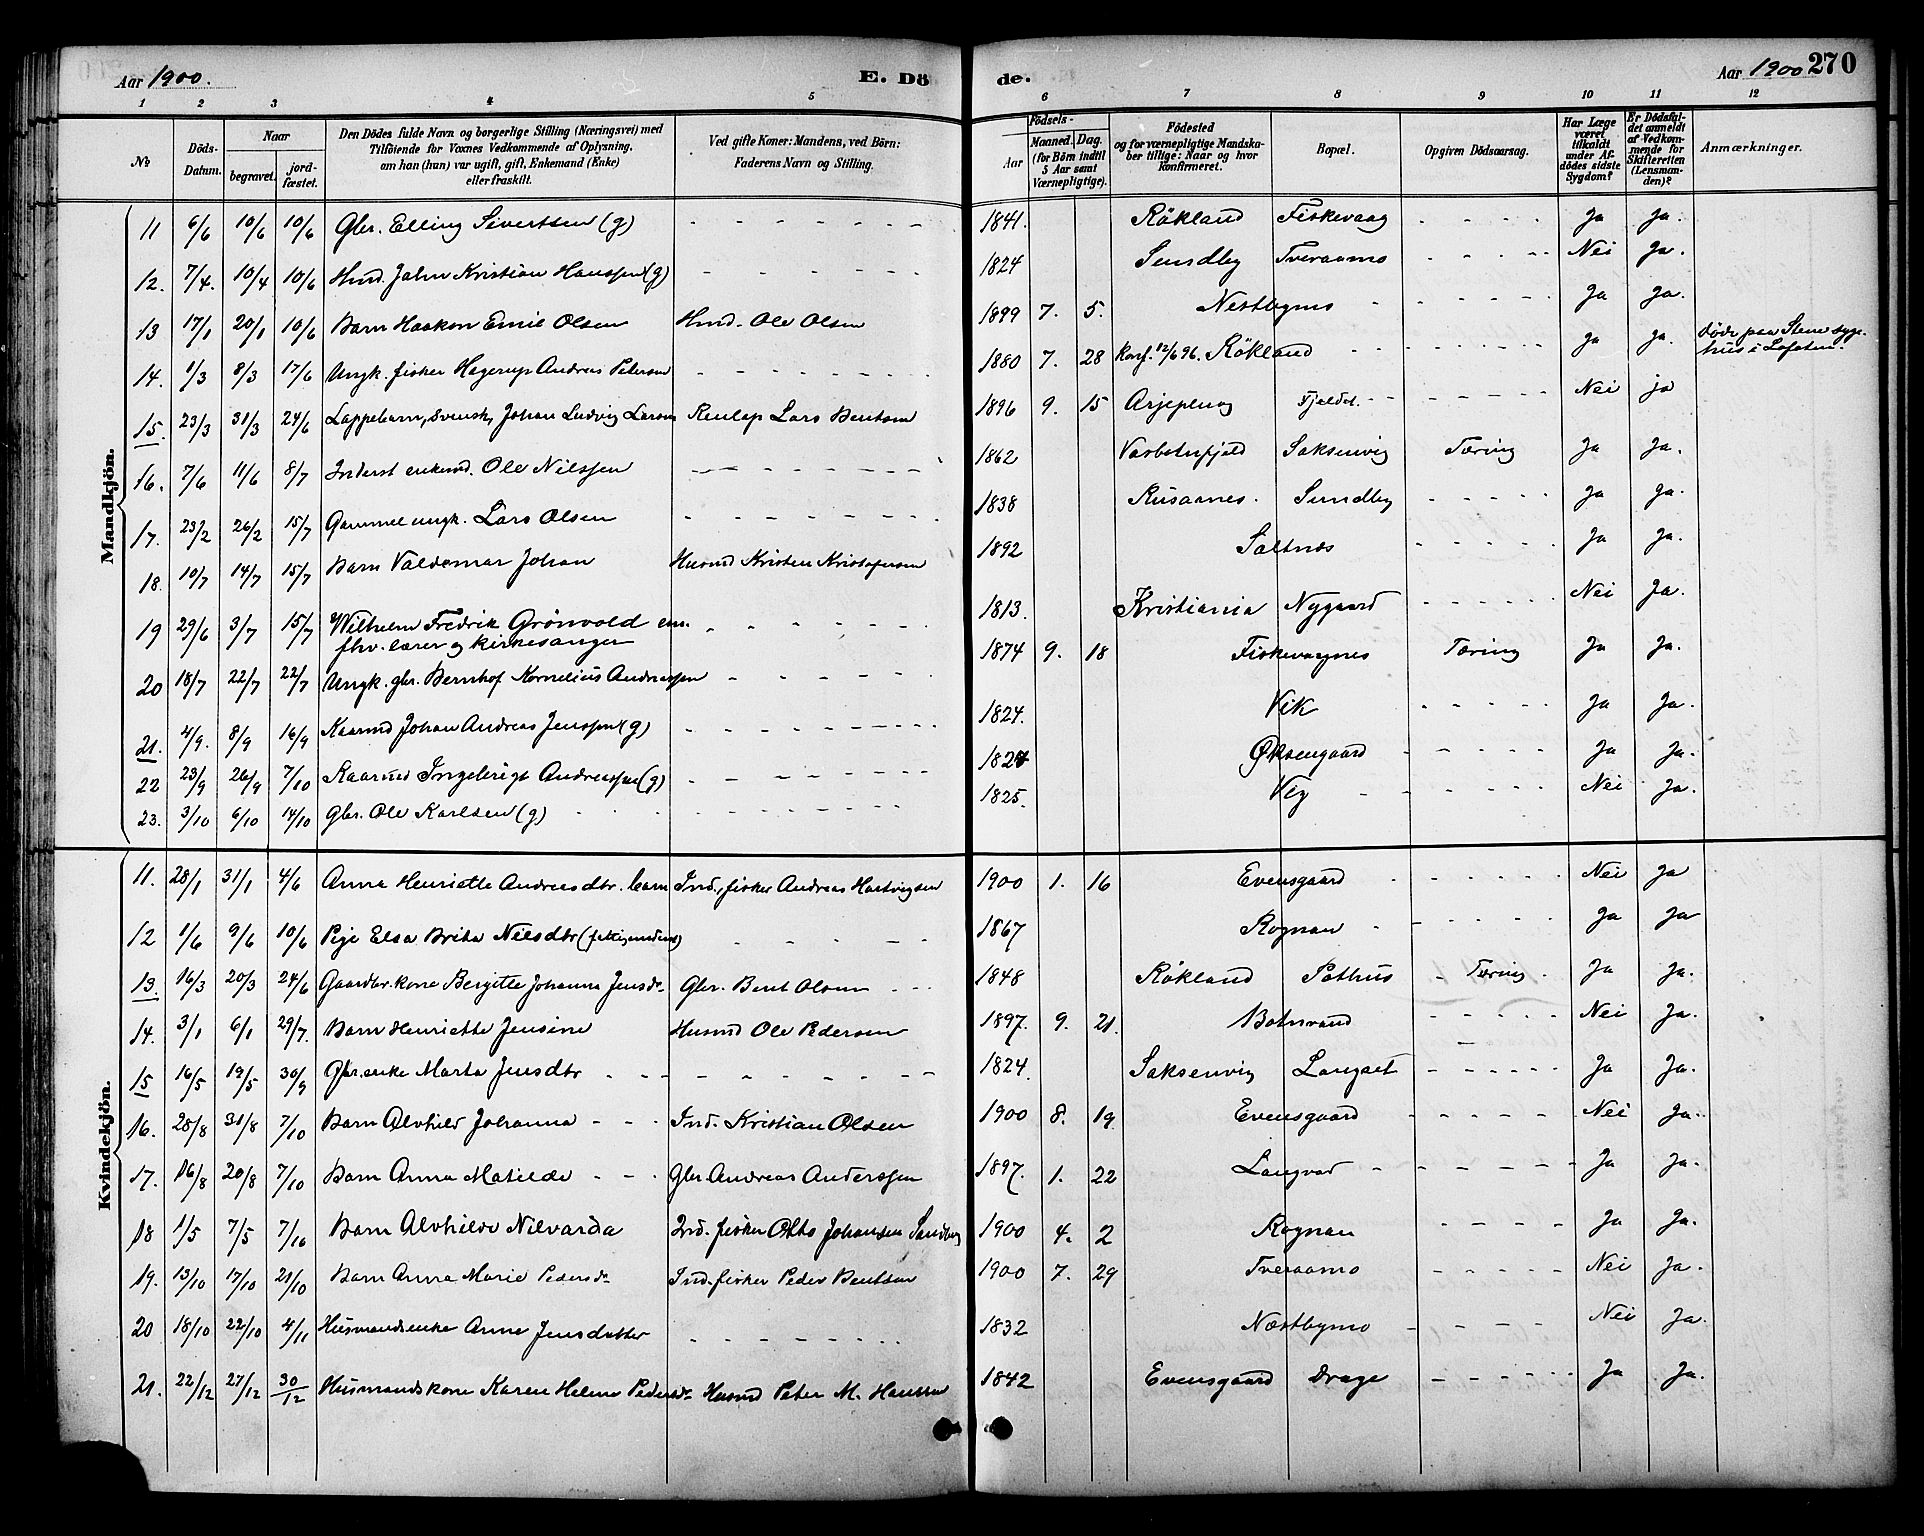 Aar 1900. E. Dö de. Aar 1900 270
1 2 3 4 5 6 7 8 9 10 11 12
№ Döds-Datum. Naar begravet. jordfæstet. Den Dödes fulde Navn og borgerlige Stilling (Næringsvei) med Tilföiende for Voxnes Vedkommende af Oplysning, om han (hun) var ugift, gift, Enkemand (Enke) eller fraskilt. Ved gifte Koner: Mandens, ved Börn: Faderens Navn og Stilling. Födsels- Aar Maaned. Dag. (for Börn indtil 5 Aar samt Værnepligtige). Födested og for værnepligtige Mandskaber tillige: Naar og hvor Konfirmeret. Bopæl. Opgiven Dödsaarsag. Har Læge været tilkaldt under Afdödes sidste Sygdom? Er Dödsfaldet anmeldt af Vedkommende for Skifteretten (Lensmanden)? Anmærkninger.
Mandkjön.
11 6/6 10/6 10/6 Gbr. Elling Sivertsen (g) 1841. Rökland Fiskevaag Ja Ja.
12. 7/4. 10/4 10/6 Husd. Jahn Kristian Hanssen (g) 1824 Sundby Tveraamo Nei Ja.
13 17/1 20/1 10/6 Barn Haakon Emil Olsen Husd. Ole Olsen 1899 7. 5. Nestbymo Ja Ja.
14. 1/3 8/3 17/6 Ungk. fisker Hagerup Andreas Petersen 1880 7. 28 Konf. 12/6 96. Rökland Ja Ja. döde paa Stene sygehus i Lofoten.
15. 23/3 31/3 24/6 Lappebarn, svensk, Johan Ludvig Larsen Renlap Lars Bentsen 1896 9. 15 Arjepluog Fjeldet. Nei ja
16. 7/6 11/6 8/7 Inderst enkemd. Ole Nilssen 1862 Vasbotnfjeld Saksenvig Tæring Ja Ja.
17. 23/2 26/2 15/7 Gammel ungk. Lars Olsen 1838 Rusaanes. Sundby Ja Ja.
18. 10/7 14/7 15/7 Barn Valdemar Johan Husmd Kristen Kristofersen 1892 Saltnes Ja Ja.
19 29/6 3/7 15/7 Wilhelm Fredrik Grönvold em. fhv. lærer og kirkesanger 1813. Kristiania Nygaard Nei Ja.
20 18/7 22/7 22/7 Ungk. gbr. Bernhof Kornelius Andreassen 1874 9. 18 Fiskevaagnes Tæring Ja Ja.
21. 4/9. 8/9 16/9 Kaarmd Johan Andreas Jenssen (g) 1824. Vik Ja Ja.
22 23/9 26/9 7/10 Kaarmd Ingebrigt Andreassen (g) Øksengaard Ja Ja.
23. 3/10 6/10 14/10 Gbr. Ole Karlsen (g) 1825. Vig Nei Ja.
Kvindekjön.
11. 28/1 31/1 4/6 Anna Henriette Andreasdtr. barn Ind., fisker Andreas Hartvigsen 1900 1. 16 Evensgaard Nei Ja
12 1/6 9/6 10/6 Pige Elsa Brita Nilsdtr 1867 Rognan Ja Ja
13. 16/3 20/3 24/6 Gaardbr. kone Bergitte Johanna Jensdr Gbr. Bent Olsen 1848 Rökland Pothus Tæring Ja Ja.
14. 3/1 6/1 29/7. Barn Henriette Jensine Husmd Ole Pedersen 1897. 9. 21. Botnvand Nei Ja.
15 16/5 19/5 30/9 Gbr. enke Marta Jensdtr 1824. Saksenvig Langset Ja Ja.
16. 28/8 31/8 7/10 Barn Alvhild Johanna Ind. Kristian Olsen 1900 8. 19. Evensgaard Nei Ja.
17. 16/8 20/8 7/10 Barn Anna Matilde Gbr. Andreas Anderssen 1897. 1. 22 Langvad Ja Ja.
18 1/5 7/5 7/10 Barn Alvhilde Nilvarda Ind. fisker Otto Johansen Sandberg 1900 4. 2 Rognan Ja Ja.
19. 13/10 17/10 21/10 Barn Anna Marie Pedersdr Ind. fisker Peder Bentsen 1900 7. 29 Tveraamo Nei Ja.
20 18/10 22/10 4/11 Husmandsenke Anne Jensdatter 1832 Næstbymo Nei Ja.
21. 22/12 27/12 30/12 Husmandskone Karen Helene Pedersdr Husmd Peter M. Hanssen 1842 Evensgaard Drage Ja Ja.